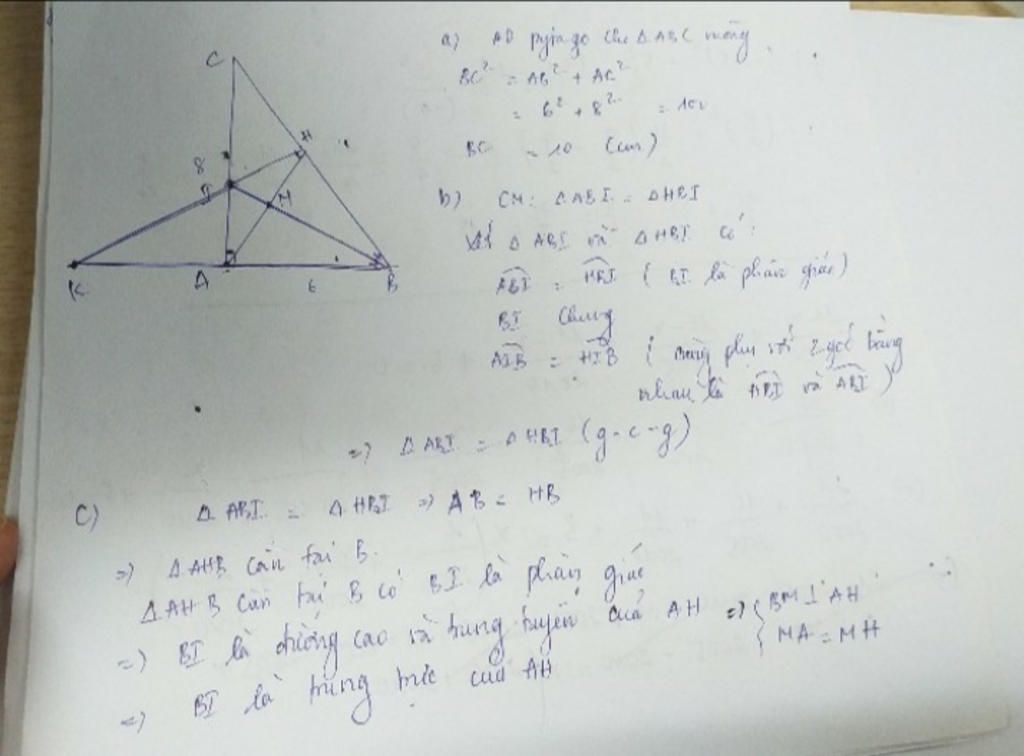 C
H
8
I
M
K
A
6
B
a) AD pytago cho ΔABC vuông
BC² = AB² + AC²
= 6² + 8² = 100
BC = 10 (cm)
b) CM: ΔABI = ΔHBI
Xét ΔABI và ΔHBI có:
ABI = HBI (BI là phân giác)
BI chung
AIB = HIB (cùng phụ với 2 góc bằng
nhau là HBI và ABI)
=> ΔABI = ΔHBI (g-c-g)
c) ΔABI = ΔHBI => AB = HB
=> ΔAHB cân tại B.
ΔAHB cân tại B có BI là phân giác
=) BI là đường cao và trung tuyến của AH => { BM ⊥ AH
MA = MH
=) BI là trung trực của AH